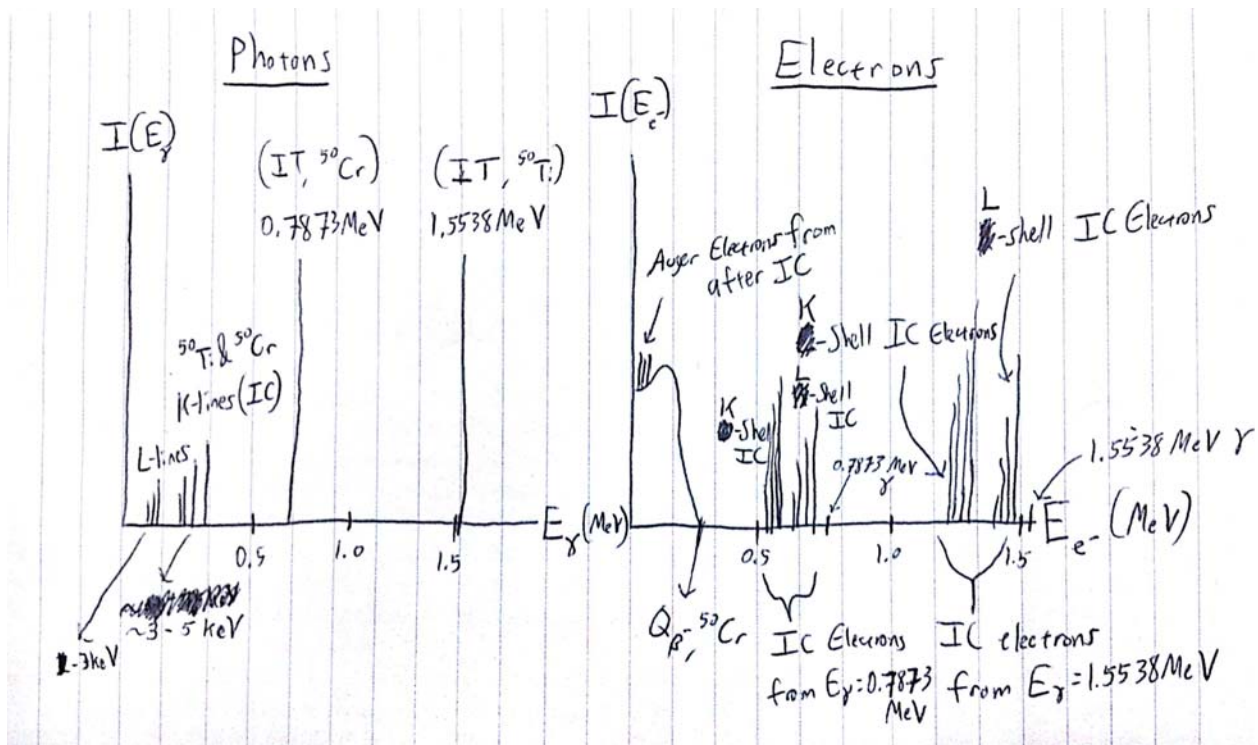 Photons
I(E)γ
(IT, ⁵⁰Cr)
0.7873 MeV
(IT, ⁵⁰Ti)
1.5538 MeV
⁵⁰Ti & ⁵⁰Cr
K-lines (IC)
L-lines
0.5
1.0
1.5
Eγ (MeV)
~3-5 keV
-3keV
Electrons
I(Ee-)
Auger Electrons from
after IC
K
-shell
IC
K
-Shell IC Electrons
L
-shell
IC
L
-shell IC Electrons
0.7873 MeV
γ
1.5538 MeV γ
0.5
1.0
1.5
Ee- (MeV)
Qβ-, ⁵⁰Cr
IC Electrons
from Eγ=0.7873
MeV
IC electrons
from Eγ=1.5538MeV